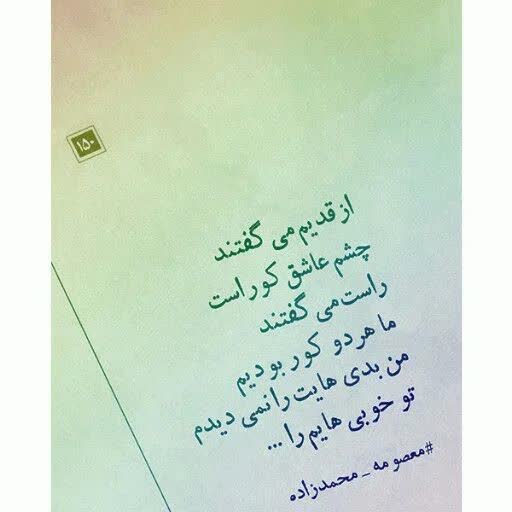 ۱۵۰
از قدیم می گفتند
چشم عاشق کور است
راست می گفتند
ما هر دو کور بودیم
من بدی هایت را نمی دیدم
تو خوبی هایم را ...
#معصومه_محمدزاده